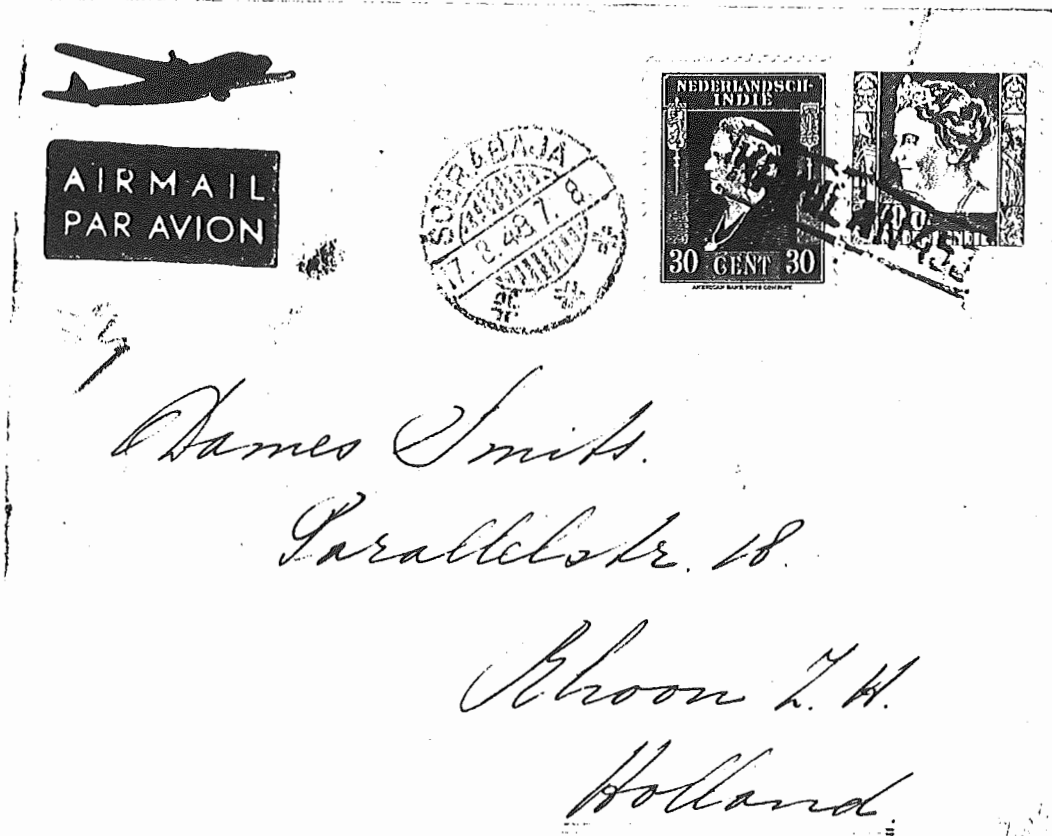 AIRMAIL
PAR AVION
SOERABAJA
17. 8. 48 7. 8.
NEDERLANDSCH-
INDIE
30 CENT 30
AMERICAN BANK NOTE COMPANY
Dames Smits.
Parallelstr. 18.
Rhoon Z. H.
Holland.